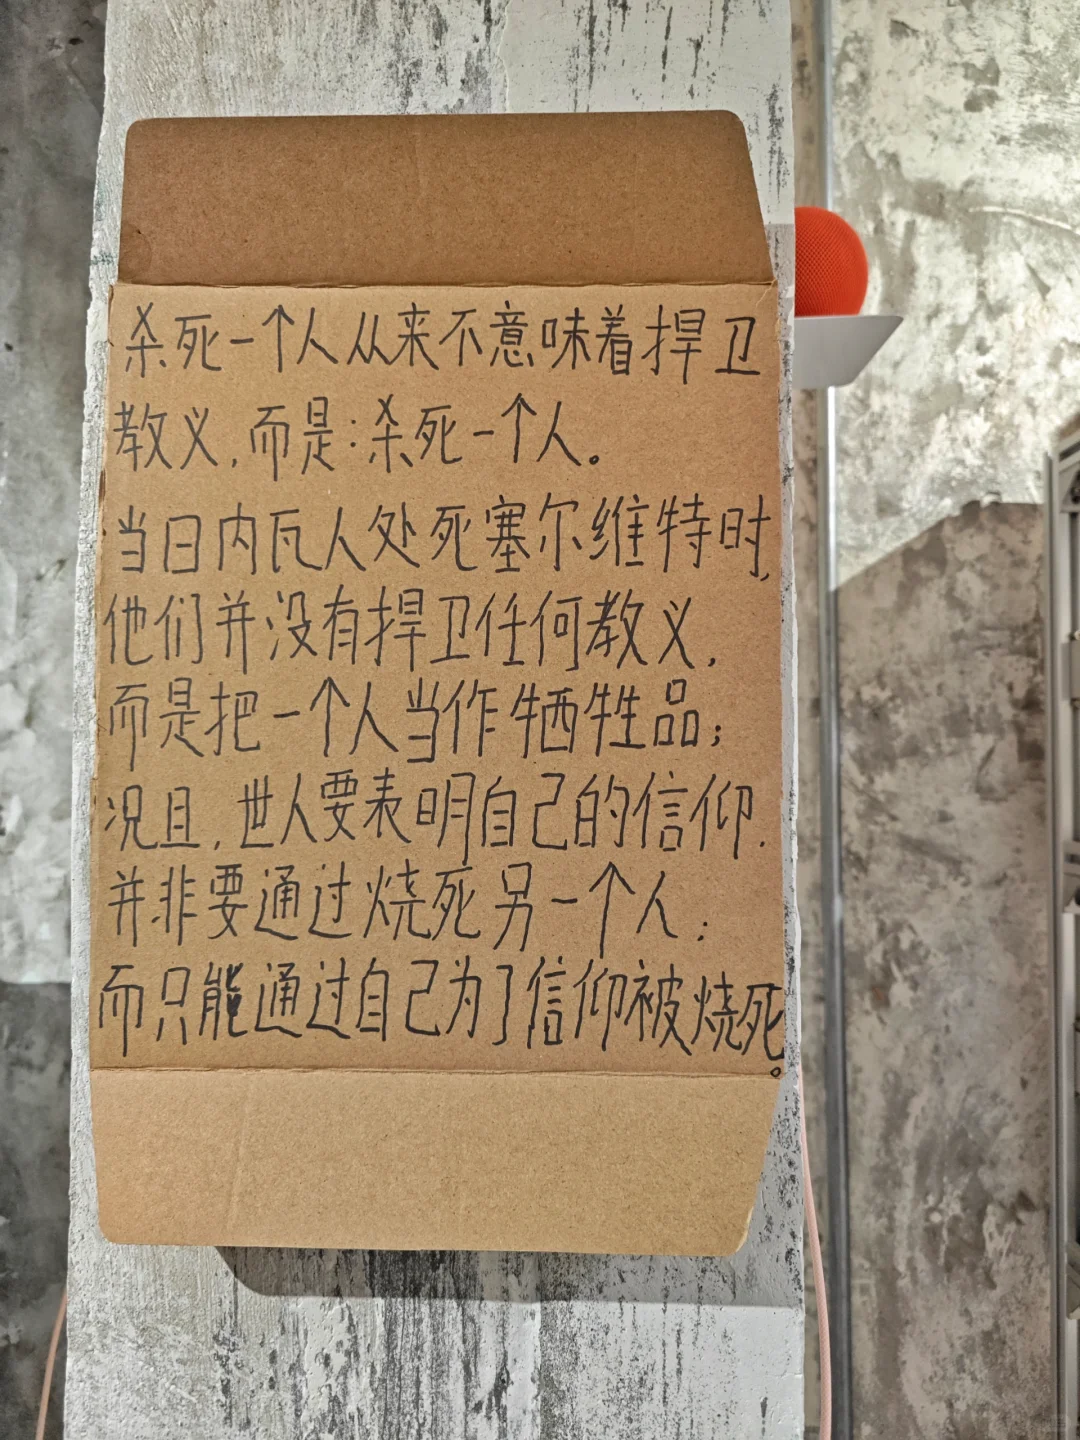 杀死一个人从来不意味着捍卫
教义,而是:杀死一个人。
当日内瓦人处死塞尔维特时,
他们并没有捍卫任何教义,
而是把一个人当作牺牲品;
况且,世人要表明自己的信仰,
并非要通过烧死另一个人;
而只能通过自己为了信仰被烧死。